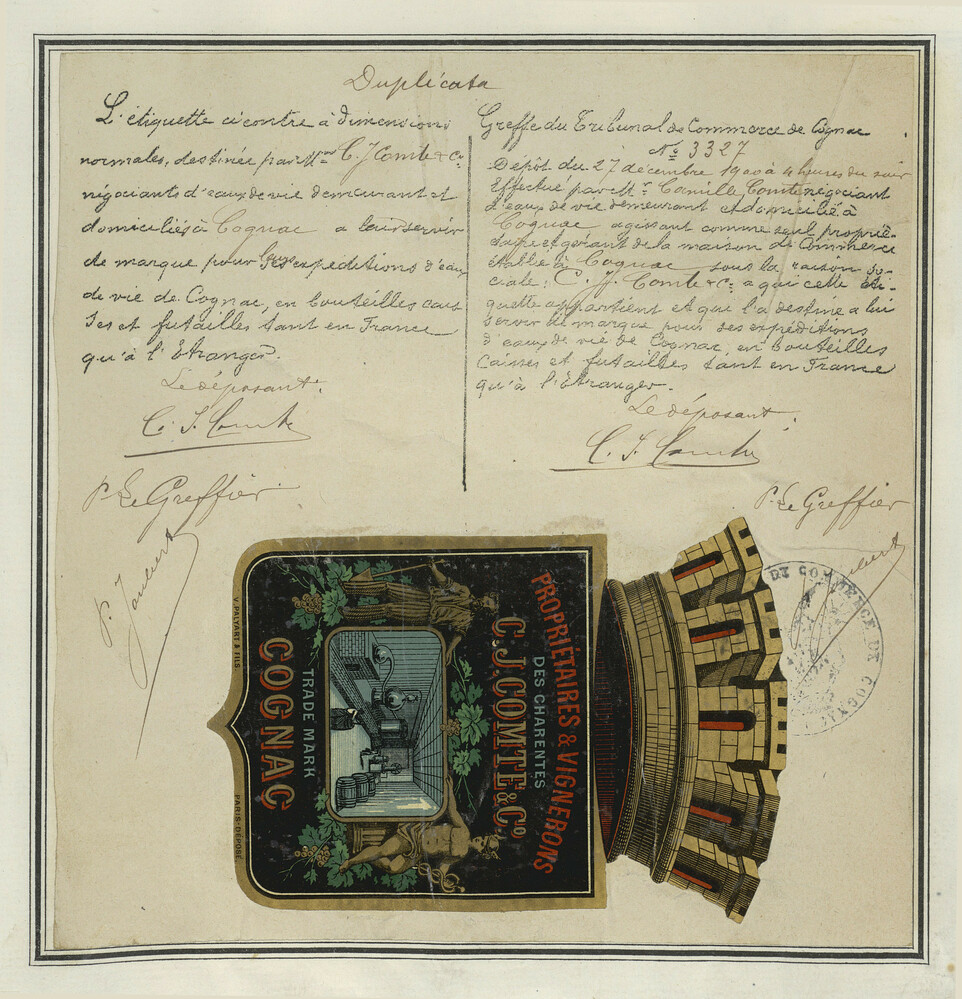 Duplicata
L'étiquette ci contre à dimensions
normales, destinée par Mr C. J. Comte & Cie
négociants d'eaux de vie demeurant et
domiciliés à Cognac a leur servir
de marque pour leurs expéditions d'eaux
de vie de Cognac, en bouteilles cais
ses et futailles tant en France
qu'à l'Etranger.
Le déposant:
C. J. Comte
P. Le Greffier
P. Joubert
Greffe du Tribunal de Commerce de Cognac
No 3327
Dépôt du 27 décembre 1900 à 4 heures du soir
Effectué par Mr Camille Comte négociant
d'eaux de vie demeurant et domicilié à
Cognac agissant comme seul proprié-
taire et gérant de la maison de Commerce
établie à Cognac sous la raison so-
ciale: C. J. Comte & Cie a qui cette éti-
quette appartient et qui l'a destinée a lui
servir de marque pour ses expéditions
d'eaux de vie de Cognac, en bouteilles
Caisses et futailles tant en France
qu'à l'Etranger.
Le déposant,
C. J. Comte
P. Le Greffier
PROPRIÉTAIRES & VIGNERONS
DES CHARENTES
C.J. COMTE & CIE
TRADE MARK
COGNAC
V. PALYART & FILS.
PARIS. DÉPOSÉ
DE COMMERCE DE COGNAC